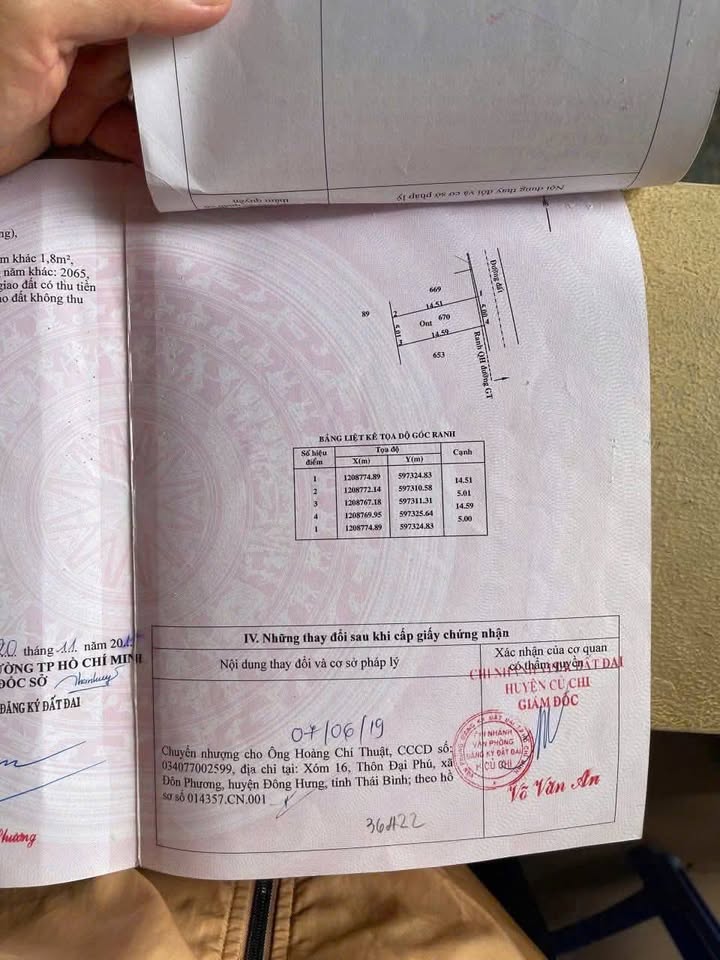 Nội dung thay đổi và cơ sở pháp lý
thẩm quyền
ng),
m khác 1,8m²,
năm khác: 2065,
giao đất có thu tiền
ao đất không thu
Đường đất
669
1
14.51
2
89
5.00
670
Ont
5.01
4
14.59
3
653
Ranh QH đường GT
BẢNG LIỆT KÊ TỌA ĐỘ GÓC RANH
Số hiệu điểm Tọa độ Cạnh
X(m) Y(m)
1 1208774.89 597324.83
14.51
2 1208772.14 597310.58
5.01
3 1208767.18 597311.31
14.59
4 1208769.95 597325.64
5.00
1 1208774.89 597324.83
20 tháng 11 năm 201
ƯỜNG TP HỒ CHÍ MINH
ĐỐC SỞ
ĐĂNG KÝ ĐẤT ĐAI
Phương
IV. Những thay đổi sau khi cấp giấy chứng nhận
Nội dung thay đổi và cơ sở pháp lý
Xác nhận của cơ quan
có thẩm quyền
CHI NHÁNH ĐẤT ĐAI
HUYỆN CỦ CHI
GIÁM ĐỐC
07/06/19
Chuyển nhượng cho Ông Hoàng Chí Thuật, CCCD số:
034077002599, địa chỉ tại: Xóm 16, Thôn Đại Phú, xã
Đôn Phương, huyện Đông Hưng, tỉnh Thái Bình; theo hồ
sơ số 014357.CN.001
CHI NHÁNH
VĂN PHÒNG
ĐĂNG KÝ ĐẤT ĐAI
H.CỦ CHI
Võ Văn An